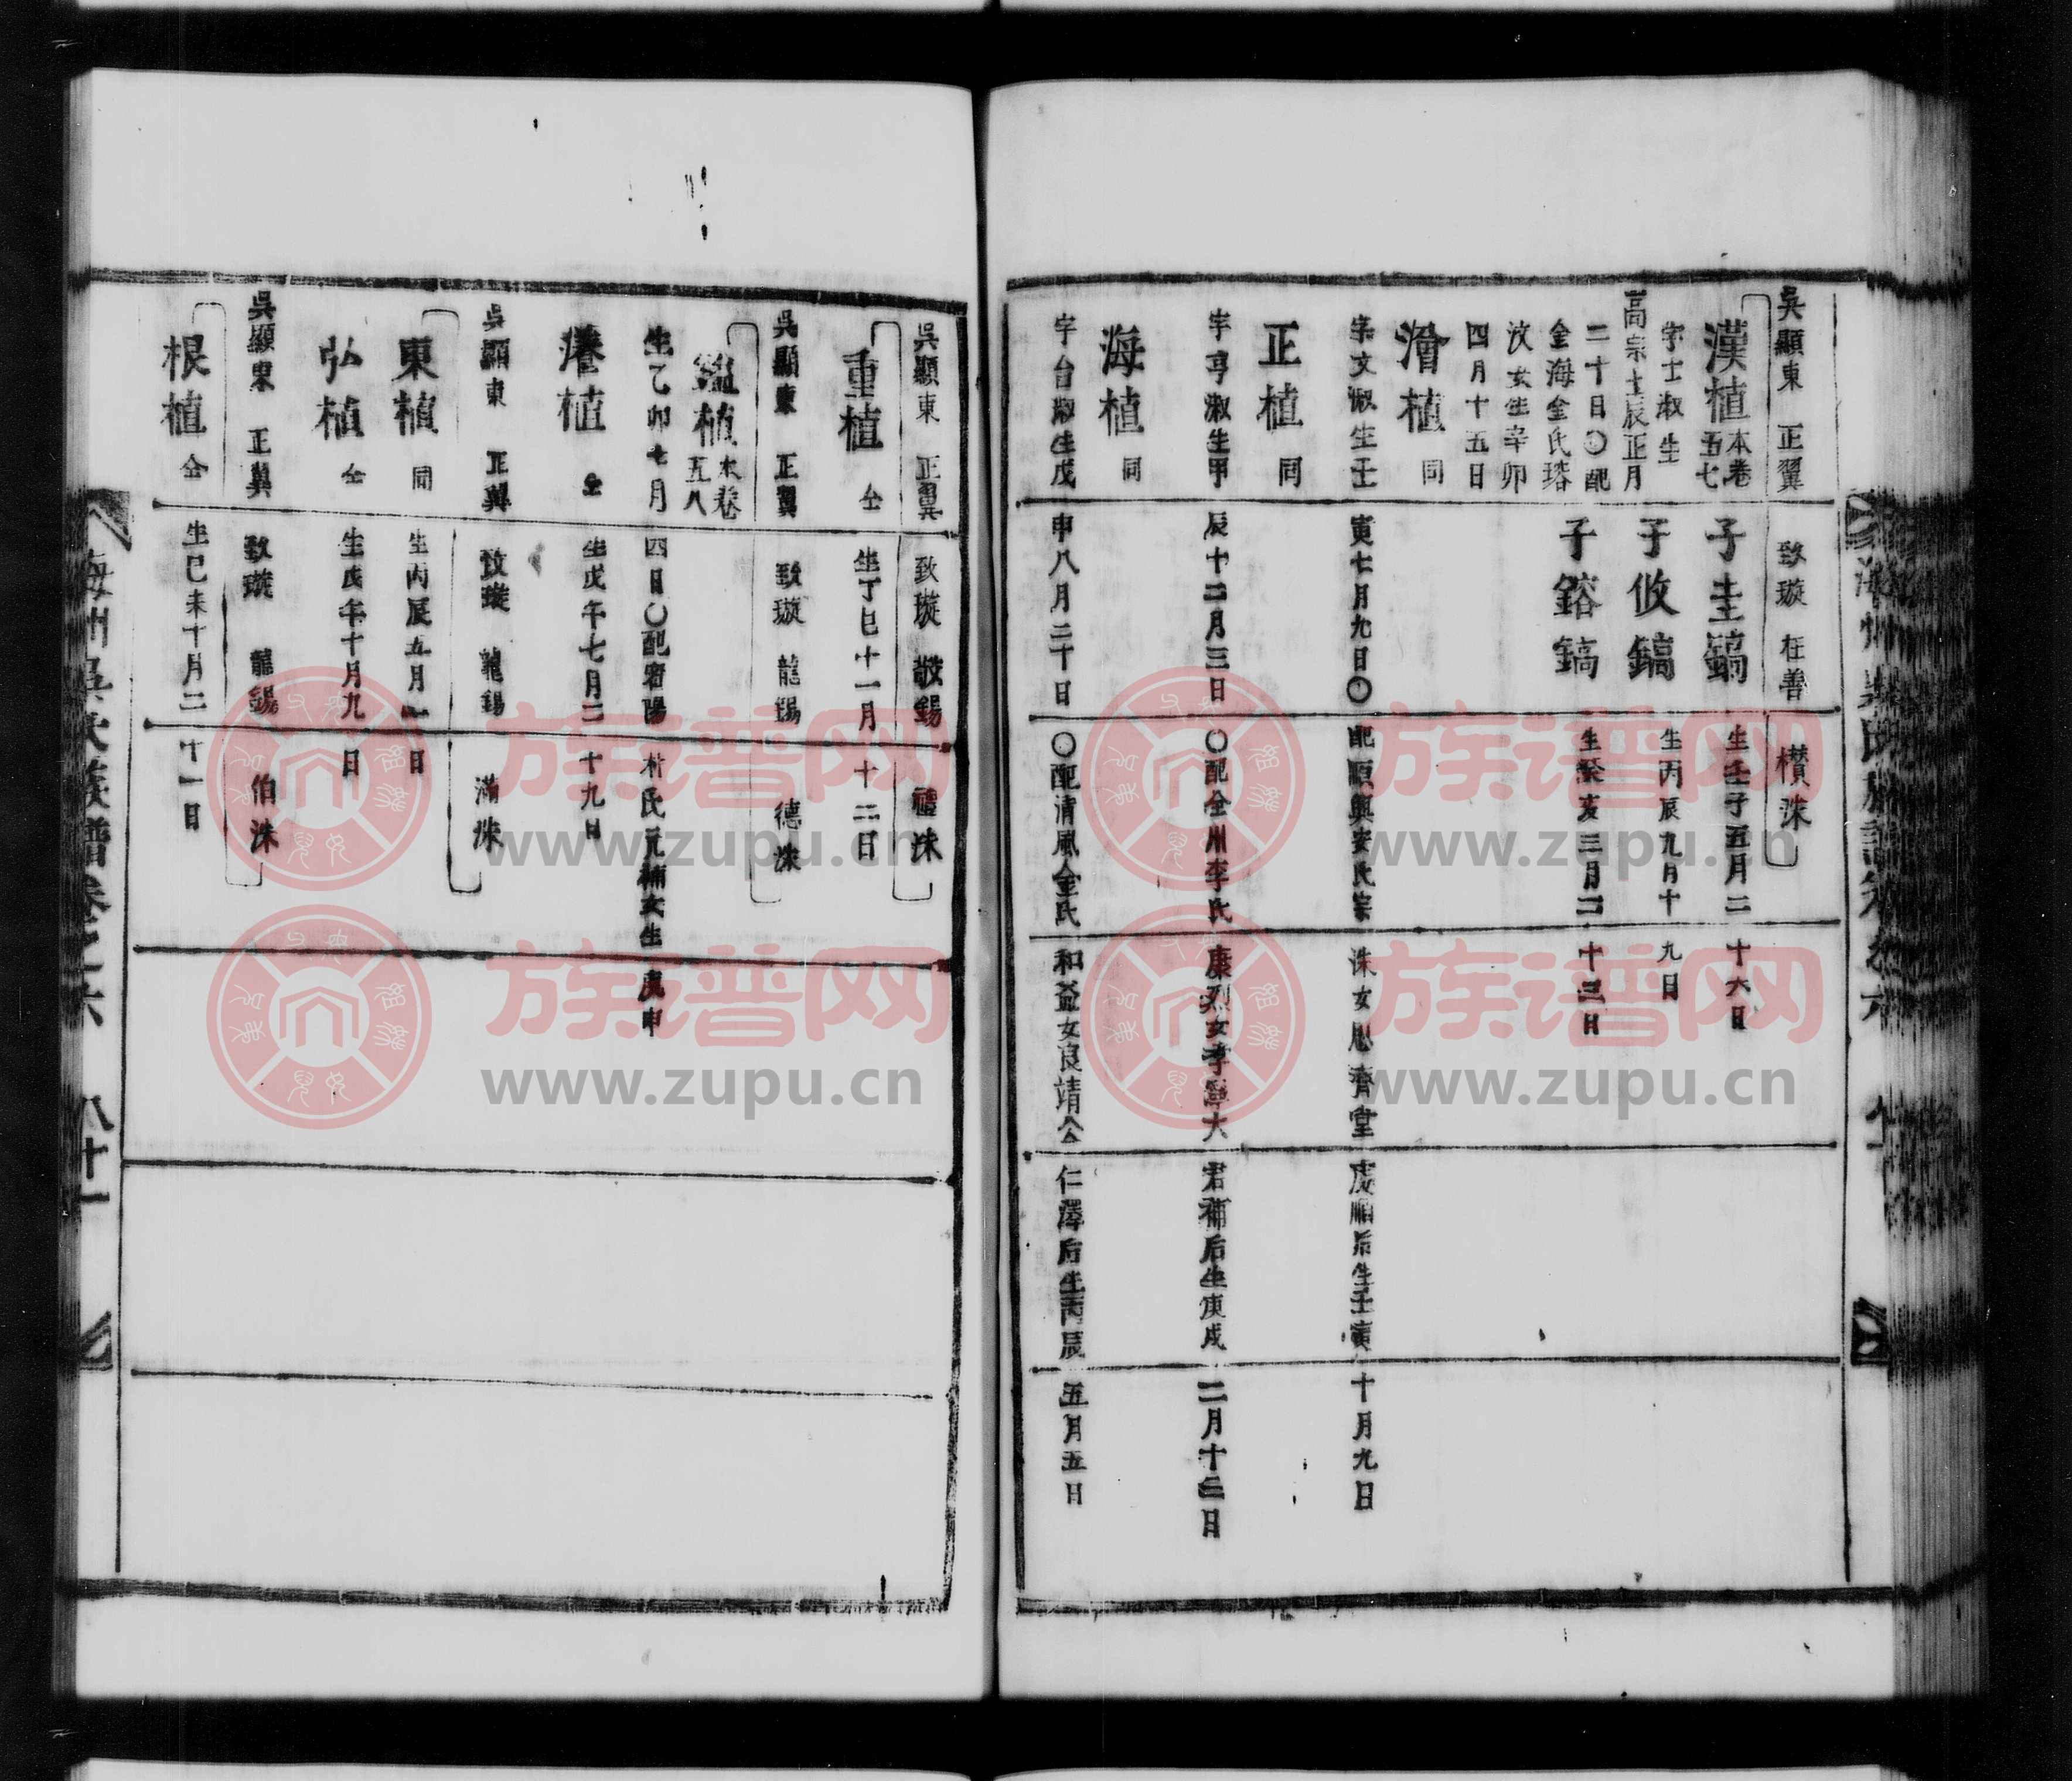 吳顯東 正翼 致璇 枉善 欑洙
漢植 本卷五七 子圭鎬 生壬子五月二十六日
字士淑生 子攸鎬 生丙辰九月十九日
高宗壬辰正月
二十日〇配 子鎔鎬 生癸亥三月二十三日
金海金氏瑢
汶女生辛卯
四月十五日
滑植 同
字文淑生壬寅七月九日〇配順興安氏宗洙女思齊堂處順后生壬寅十月九日
正植 同
字亨淑生甲辰十二月三日〇配全州李氏康烈女孝寧大君補后生庚戌二月十三日
海植 同
字台淑生戊申八月二十日〇配清風金氏和益女良靖公仁澤后生丙辰五月五日
吳顯東 正翼 致璇 敬錫 禮洙
重植 仝 生丁巳十一月十二日
吳顯東 正翼 致璇 龍錫 德洙
鎰植 本卷五八
生乙卯七月四日〇配密陽朴氏元補女生庚申
植 仝 生戊午七月二十九日
吳顯東 正翼 致璇 龍錫 滿洙
東植 同 生丙辰五月一日
弘植 仝 生戊午十月九日
吳顯東 正翼 致璇 龍錫 伯洙
根植 仝 生己未十月二十一日
海州吳氏族譜卷之六 八十一
族谱网
www.zupu.cn
族谱网
www.zupu.cn
族谱网
www.zupu.cn
族谱网
www.zupu.cn